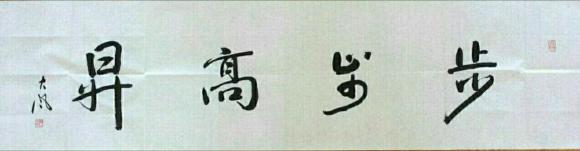 步步高昇
大風